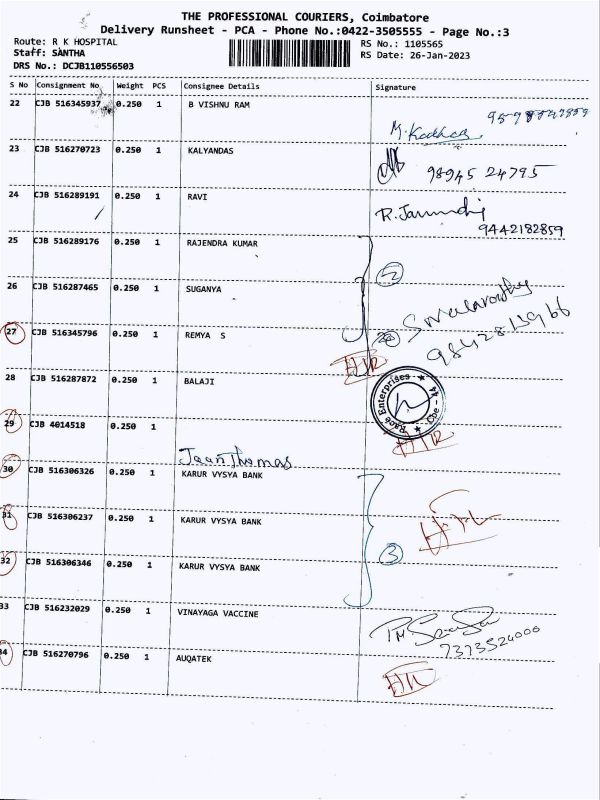 THE PROFESSIONAL COURIERS, Coimbatore
Delivery Runsheet - PCA - Phone No.:0422-3505555 - Page No.:3
Route: R K HOSPITAL
Staff: SANTHA
DRS No.: DCJB110556503
RS No.: 1105565
RS Date: 26-Jan-2023
S No Consignment No Weight PCS Consignee Details Signature
22 CJB 516345937 0.250 1 B VISHNU RAM
23 CJB 516270723 0.250 1 KALYANDAS
98945 24795
24 CJB 516289191 0.250 1 RAVI
9442182859
25 CJB 516289176 0.250 1 RAJENDRA KUMAR
26 CJB 516287465 0.250 1 SUGANYA
27 CJB 516345796 0.250 1 REMYA S
28 CJB 516287872 0.250 1 BALAJI
Race Enterprises
29 CJB 4014518 0.250 1
Jaan Thomas
30 CJB 516306326 0.250 1 KARUR VYSYA BANK
31 CJB 516306237 0.250 1 KARUR VYSYA BANK
32 CJB 516306346 0.250 1 KARUR VYSYA BANK
3
33 CJB 516232029 0.250 1 VINAYAGA VACCINE
7373524000
34 CJB 516270796 0.250 1 AUQATEK